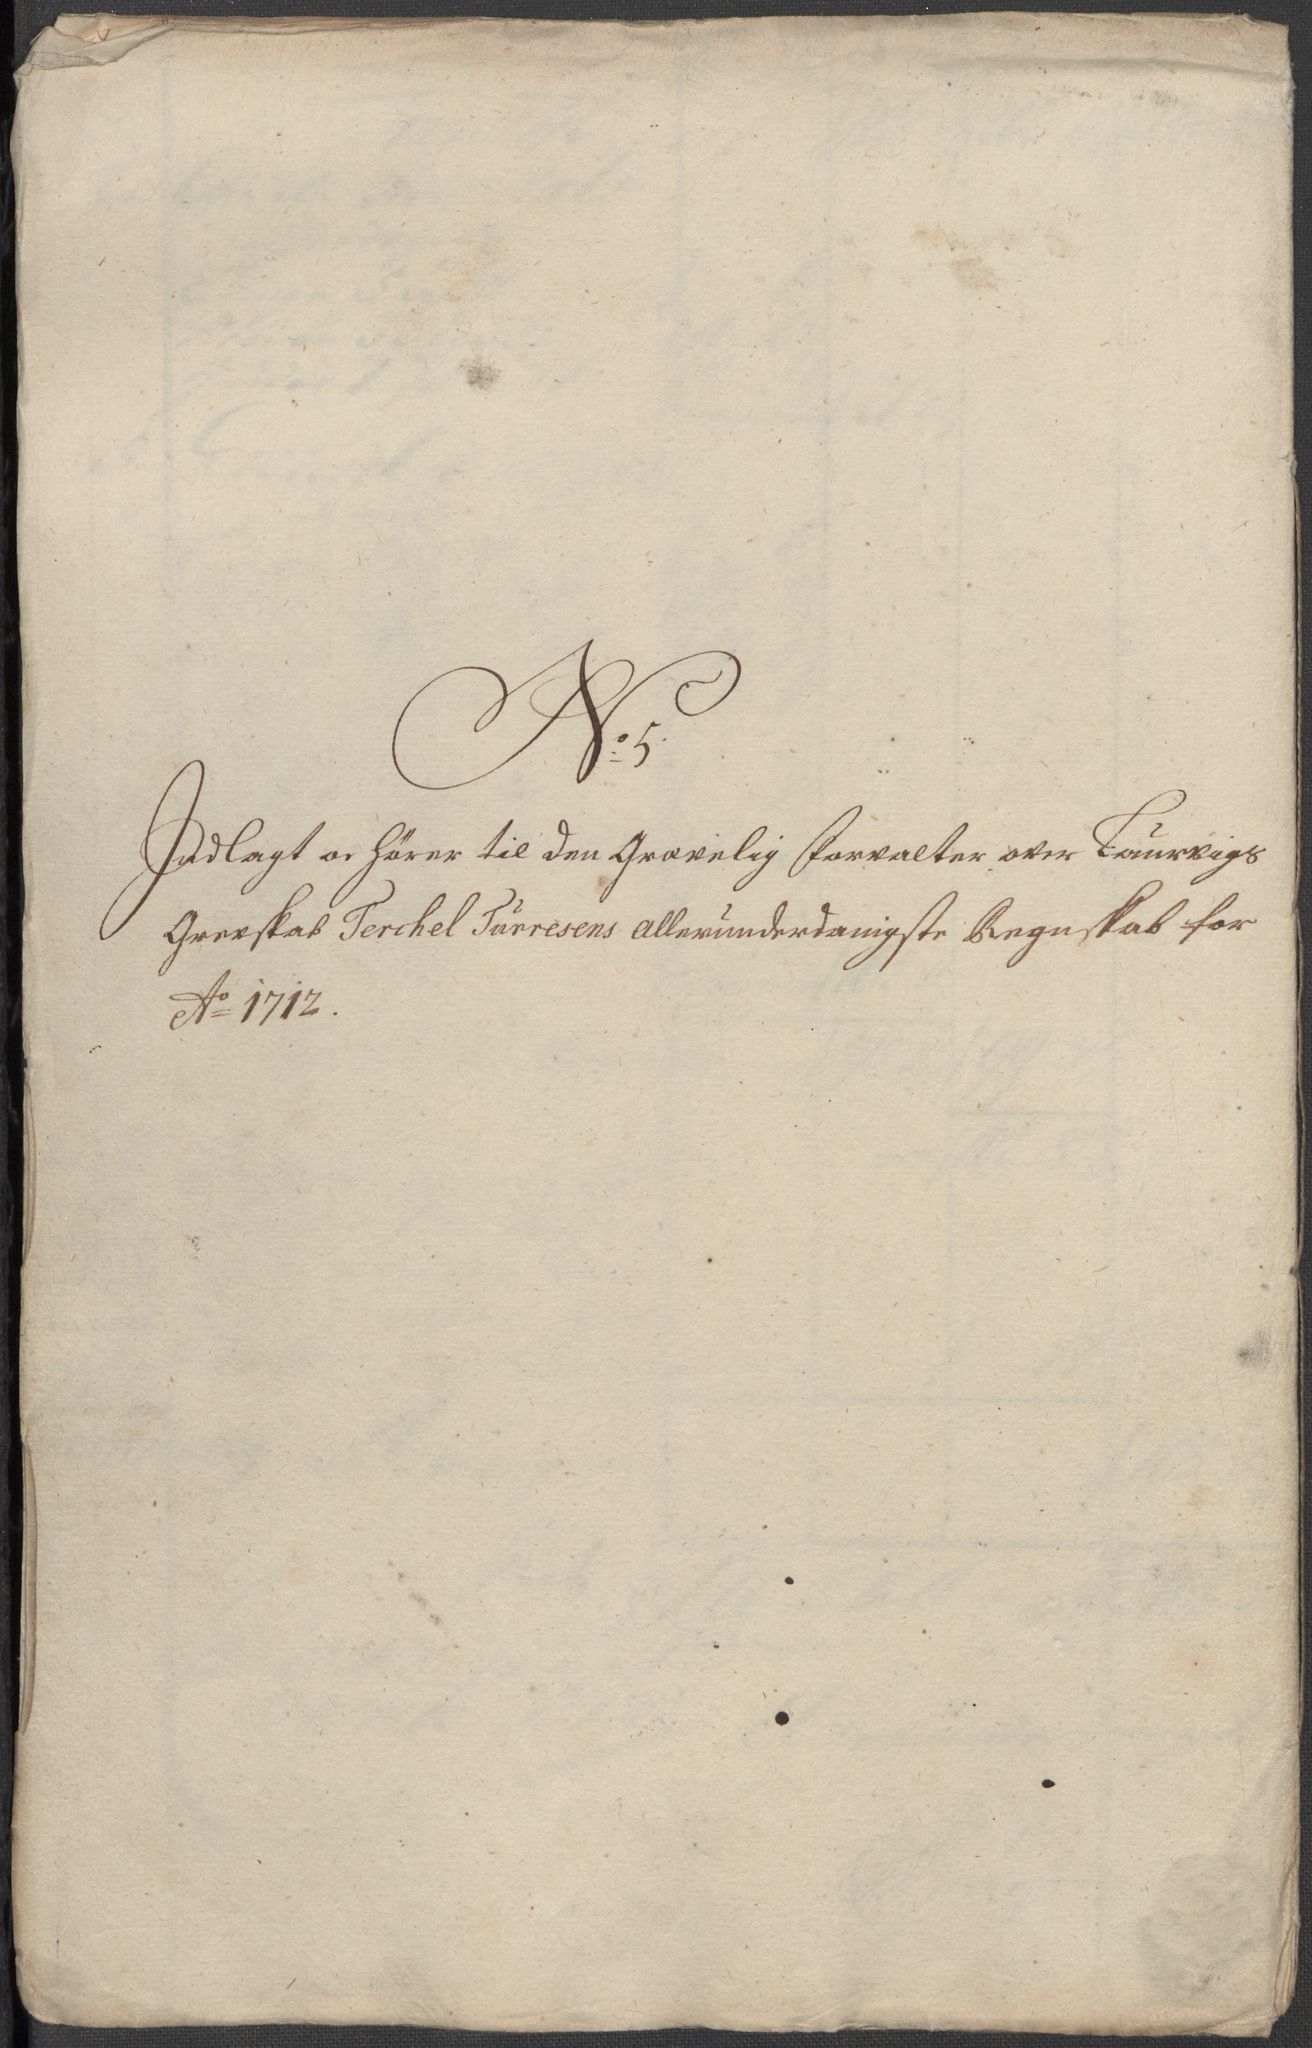 No 5.
Indlagt oc hörer til den Grevelig forvalter over Laurvigs
Grevskab Terchel Turresens allerunderdanigste Regnskab for
Ao 1712.